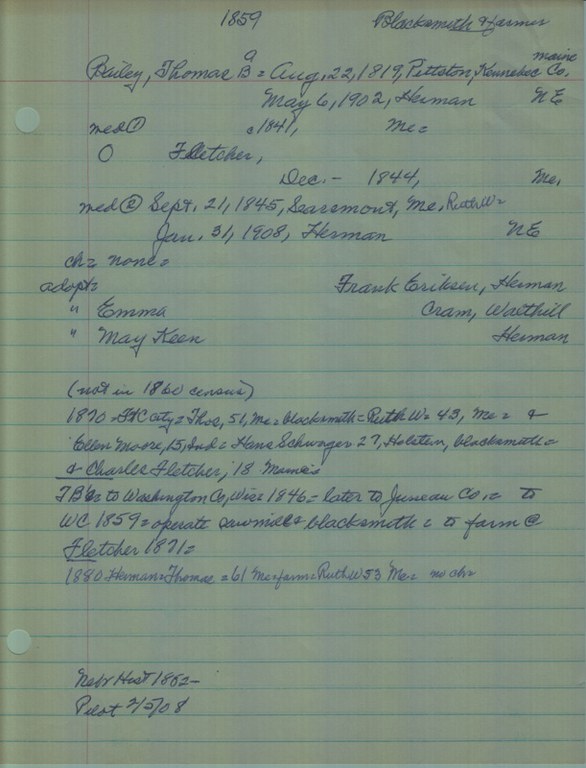 1859 Blacksmith & Farmer
Bailey, Thomas B = Aug. 22, 1819, Pittston, Kennebec Co. Maine
May 6, 1902, Herman NE
med ① c 1841, Me =
O Fletcher,
Dec. - 1844, Me,
med ② Sept. 21, 1845, Searsmont, Me, Ruth W =
Jan. 31, 1908, Herman NE
ch = none =
adopt = Frank Eriksen, Herman
" Emma Cram, Walthill
" May Keen Herman
(not in 1860 census)
1870 = city = Thos, 51, Me = blacksmith = Ruth W = 43, Me = &
Ellen Moore, 15, Ind = Hans Schwager 27, Holstein, blacksmith =
& Charles Fletcher, 18
TB's = to Washington Co, Wisc = 1846 = later to Juneau Co, = to
WC 1859 = operate sawmill & blacksmith = to farm @
Fletcher 1871 =
1880 Herman = Thomas = 61 Me = farm = Ruth W 53 Me = no ch =
Nebr Hist 1882 -
Pilot 2/5/08